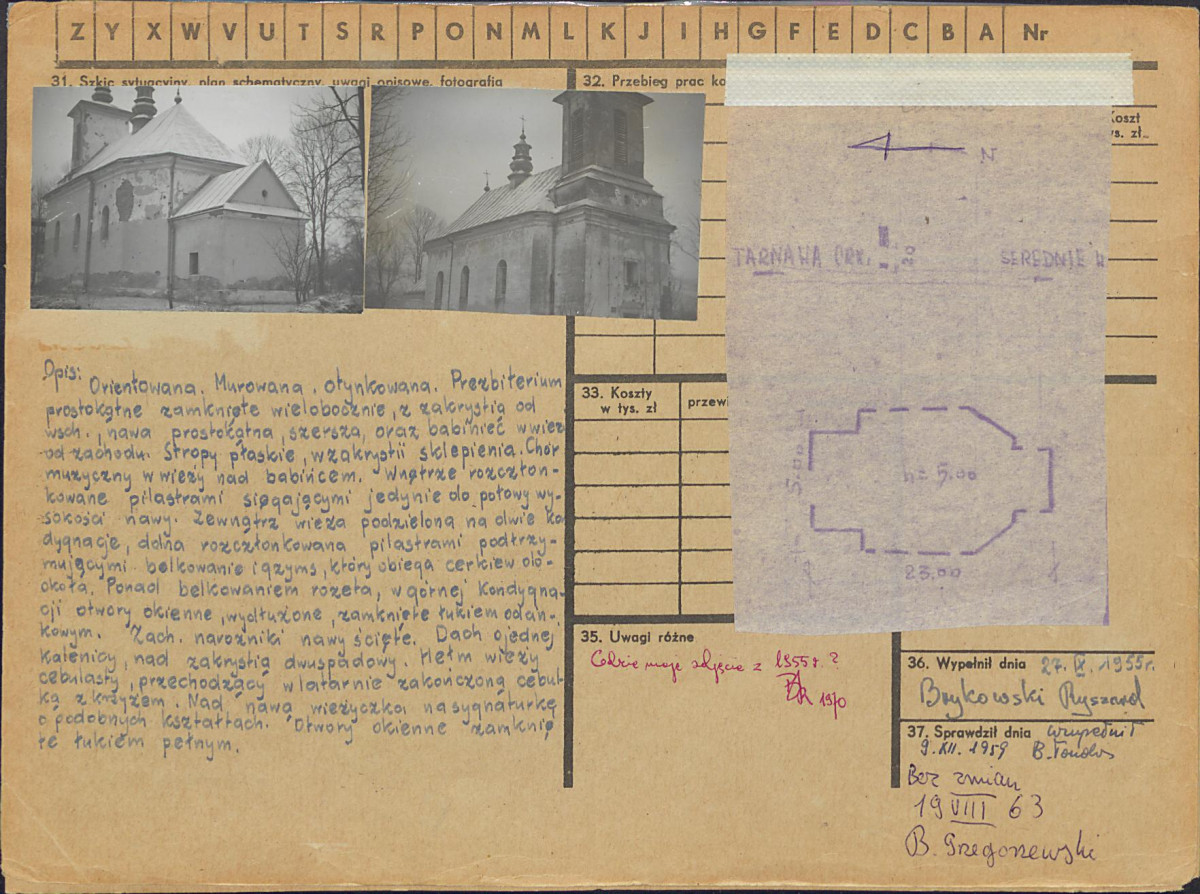 Z Y X W V U T S R P O N M L K J I H G F E D C B A Nr
31. Szkic sytuacyjny, plan schematyczny, uwagi opisowe, fotografia
Opis: Orientowana. Murowana, otynkowana. Prezbiterium
prostokątne zamknięte wielobocznie, z zakrystią od
wsch., nawa prostokątna, szersza, oraz babiniec w wież
od zachodu. Stropy płaskie, w zakrystii sklepienia. Chór
muzyczny w wieży nad babińcem. Wnętrze rozczłon-
kowane pilastrami sięgającymi jedynie do połowy wy-
sokości nawy. Zewnątrz wieża podzielona na dwie ko
dygnacje, dolna rozczłonkowana pilastrami podtrzy-
mującymi belkowanie i gzyms, który obiega cerkiew do-
okoła. Ponad belkowaniem rozeta, w górnej kondygna-
cji otwory okienne, wydłużone, zamknięte łukiem odcin-
kowym. Zach. narożniki nawy ścięte. Dach o jednej
kalenicy, nad zakrystią dwuspadowy. Hełm wieży
cebulasty, przechodzący w latarnię zakończoną cebul
ką z krzyżem. Nad nawą wieżyczka na sygnaturkę
o podobnych kształtach. Otwory okienne zamknię
te łukiem pełnym.
32. Przebieg prac ko
Koszt
ys. zł
N
TARNAWA
SEREDNIE W
h= 5.00
5.00
23.00
33. Koszty
w tys. zł
przewi
35. Uwagi różne
Gdzie moje zdjęcie z 1955 r. ?
1970
36. Wypełnił dnia 27. IX. 1955r.
Brykowski Ryszard
37. Sprawdził dnia uzupełnił
9. XII. 1959 B. Tondos
Bez zmian
19 VIII 63